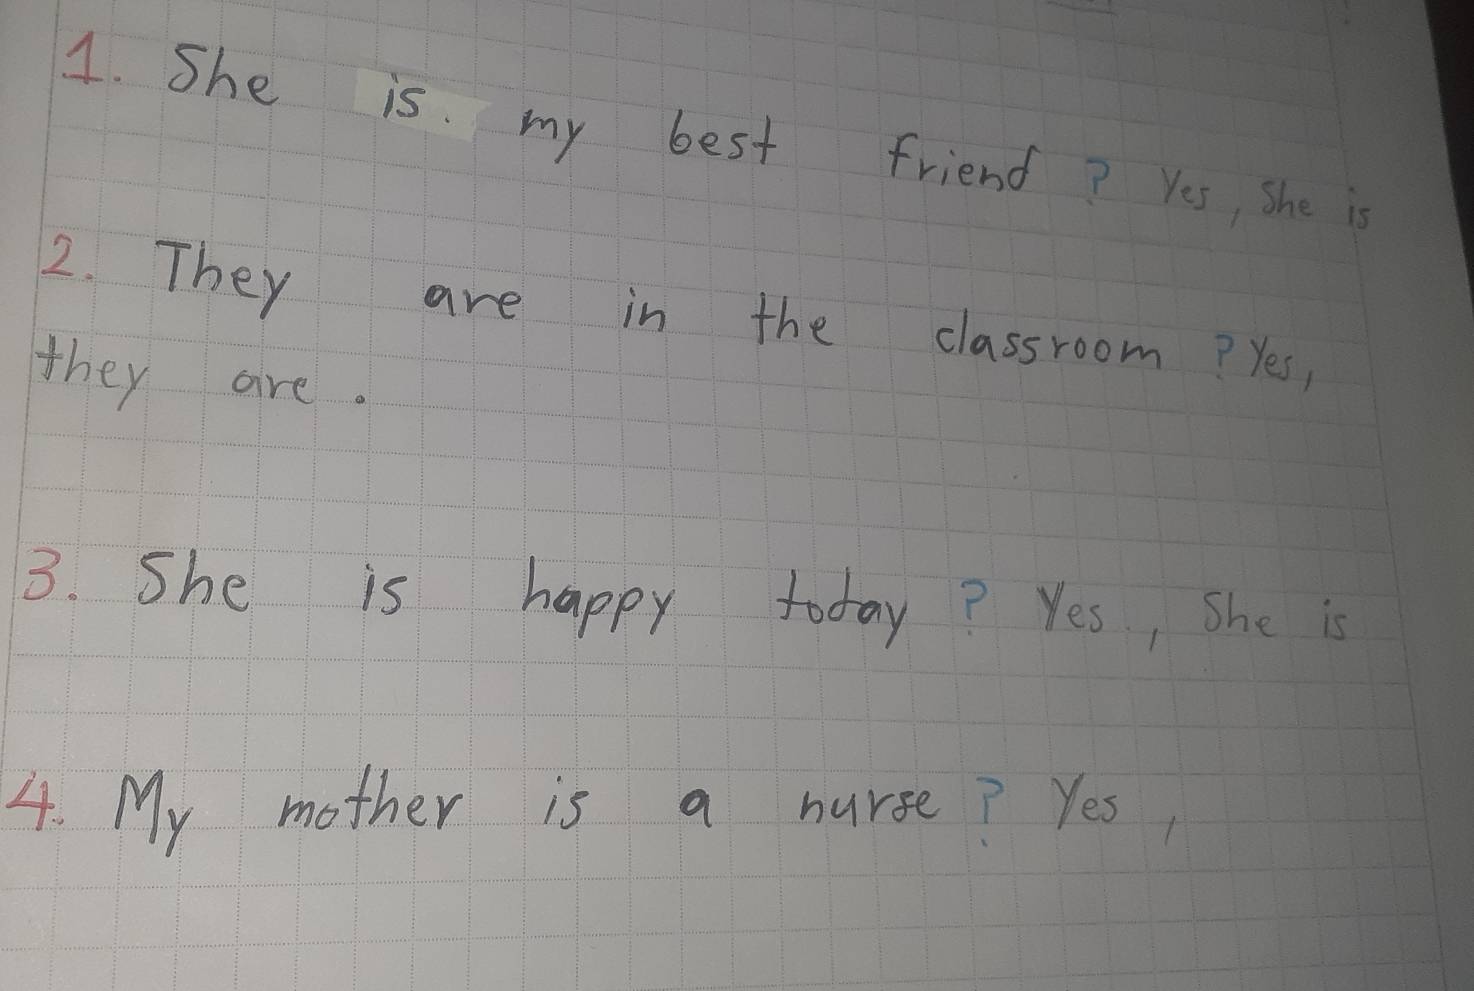 1. She is. my best friend? Yes, She is
2. They are in the classroom? Yes,
they are.
3. She is happy today? Yes., She is
4. My mother is a nurse? Yes,